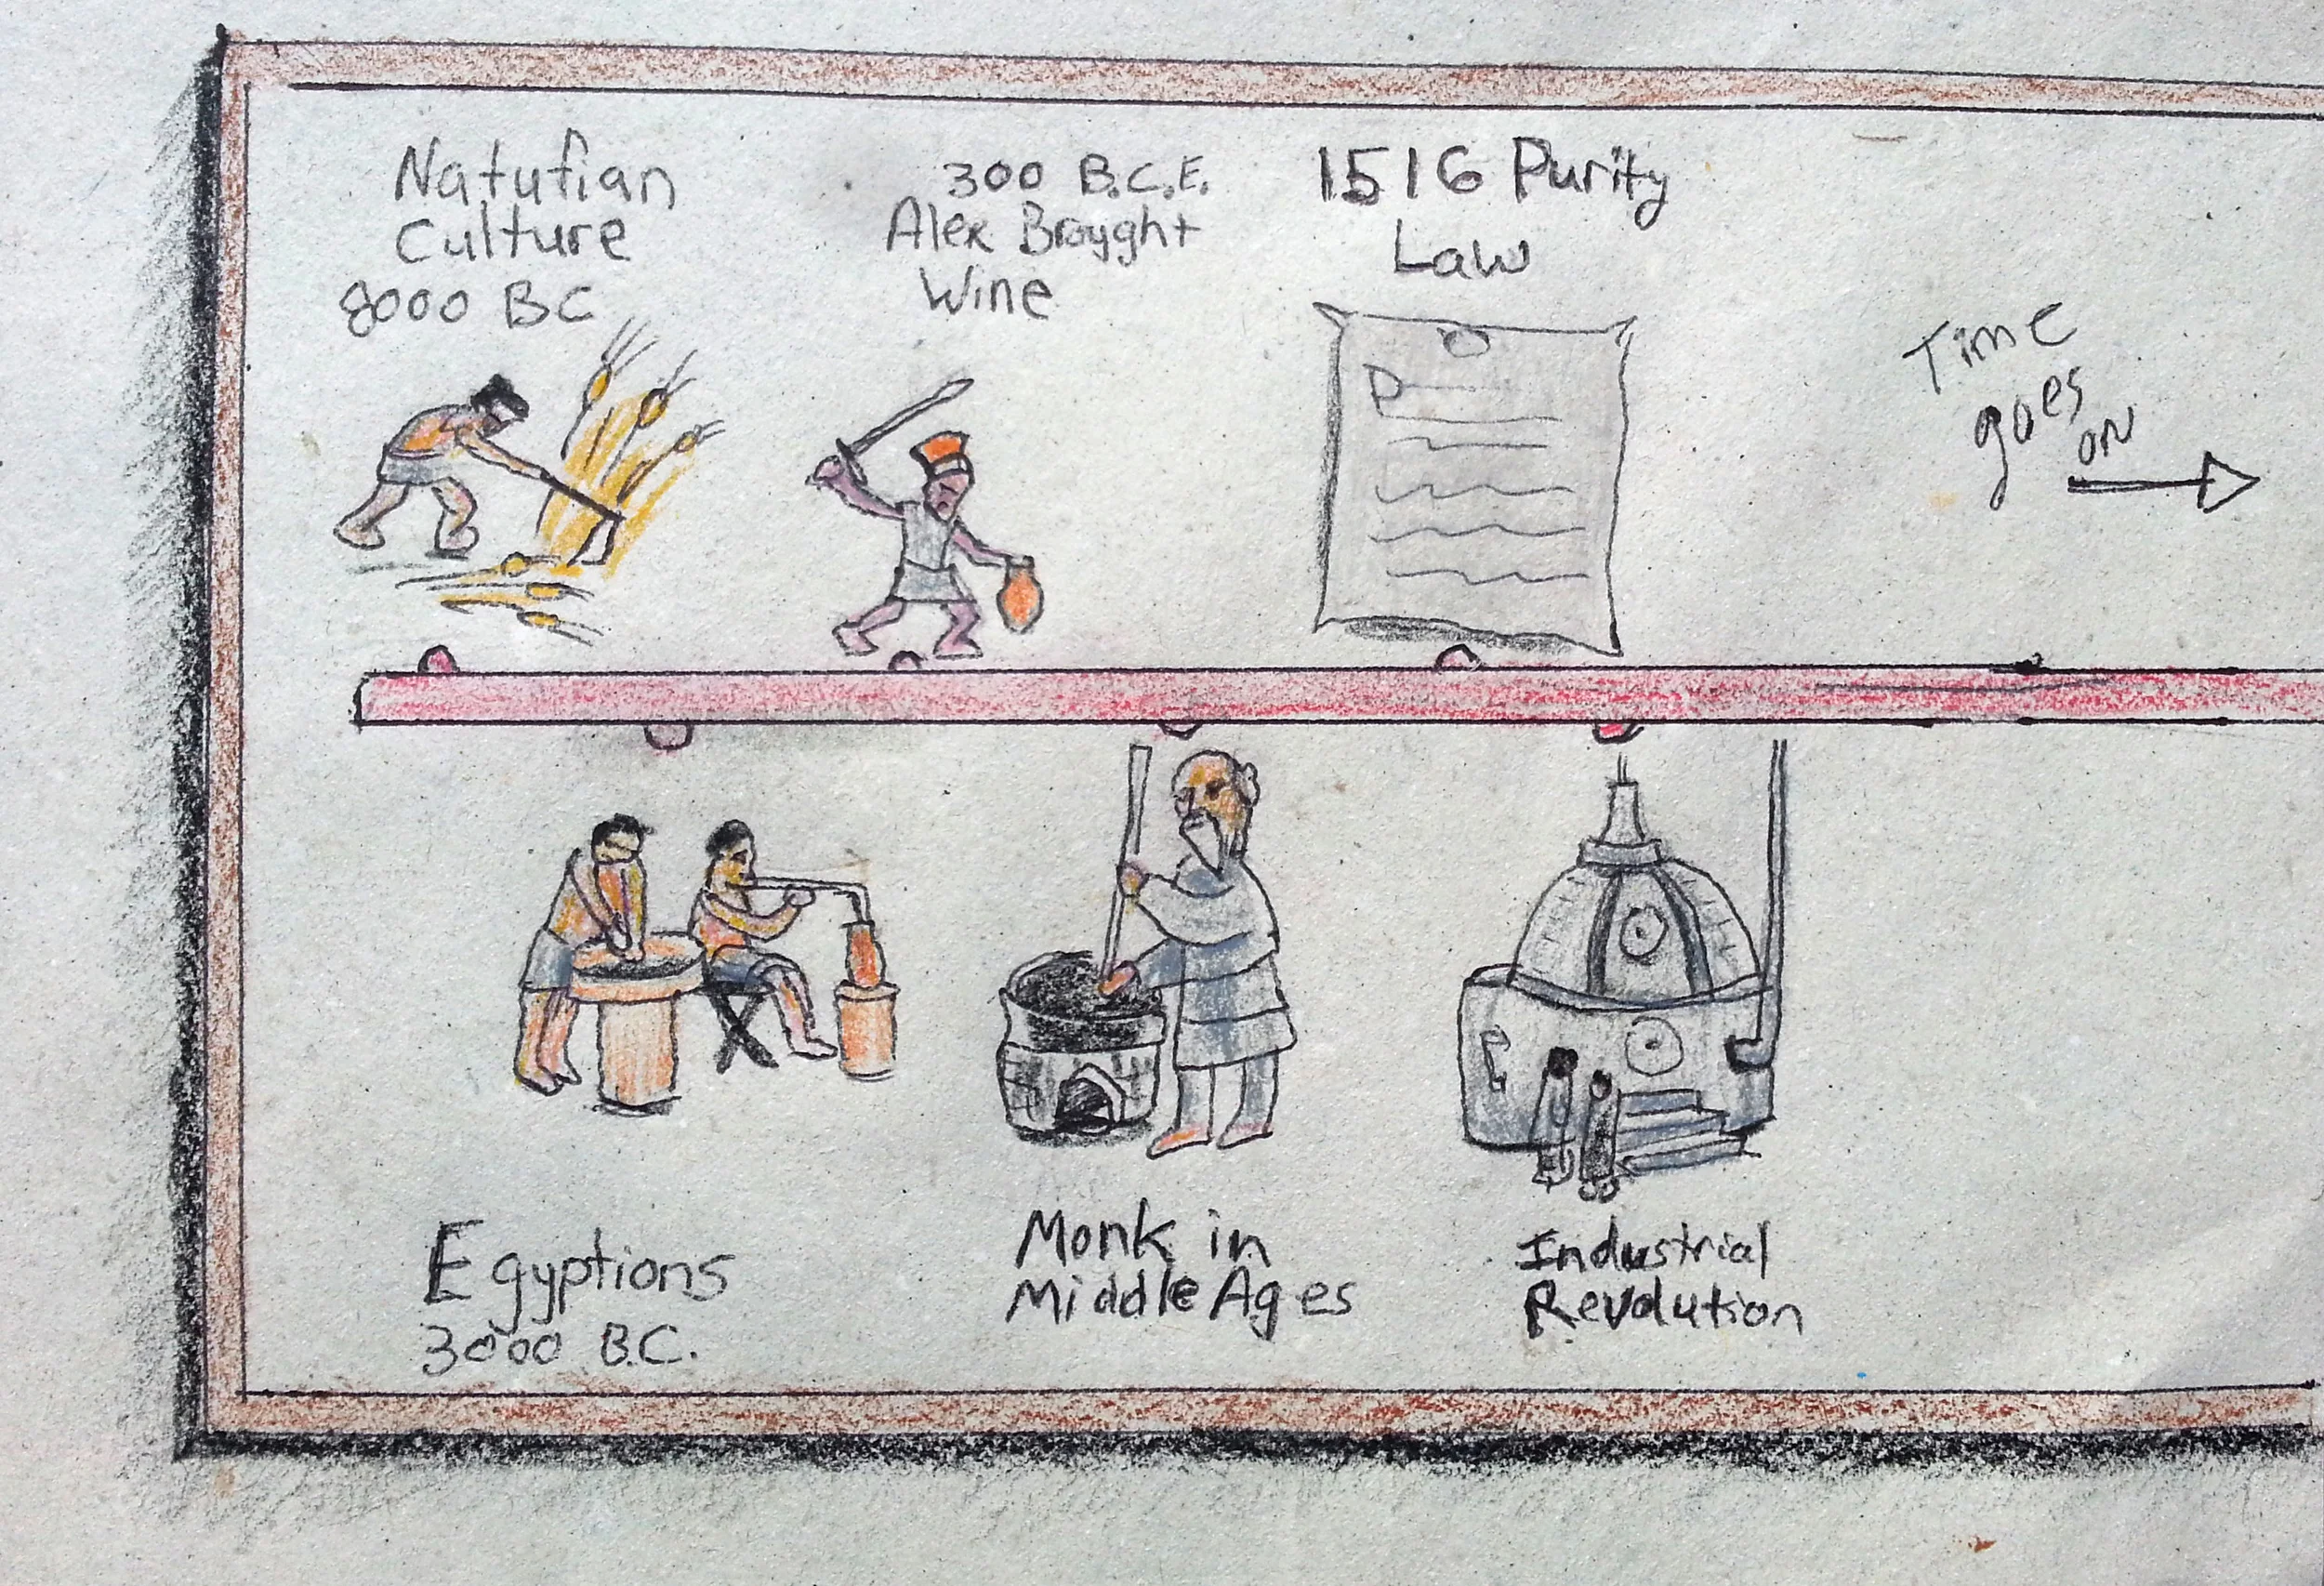 Natufian
Culture
8000 BC
300 B.C.E.
Alex Brought
Wine
1516 Purity
Law
P
Time
goes
on
Egyptions
3000 B.C.
Monk in
Middle Ages
Industrial
Revolution